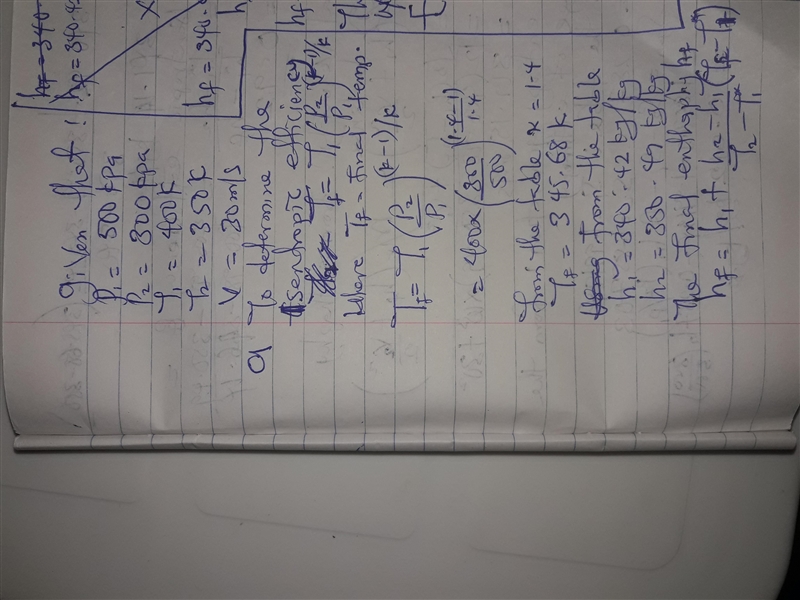 hf = 340
hf = 340.42
X
hf = 340.
given that :
P₁ = 500 kpa
P₂ = 300 kpa
T₁ = 400K
T₂ = 350K
V = 30m/s
a To determine the
isentropic efficiency
Tf = T₁ (P₂/P₁)^(k-1)/k
Where Tf = final temp.
Tf = T₁ (P₂/P₁)^(k-1)/k
= 400 x (300/500)^(1.4-1)/1.4
from the table k = 1.4
Tf = 345.68 K
from the table
h₁ = 340.42 kJ/kg
h₂ = 350.49 kJ/kg
The final enthalpy hf
hf = h₁ + h₂ - h₁ (Tf - T₁)/T₂ - T₁